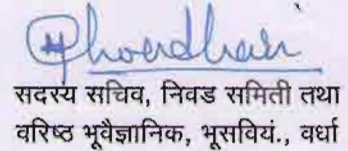 सदस्य सचिव, निवड समिती तथा
वरिष्ठ भूवैज्ञानिक, भूसवियं., वर्धा